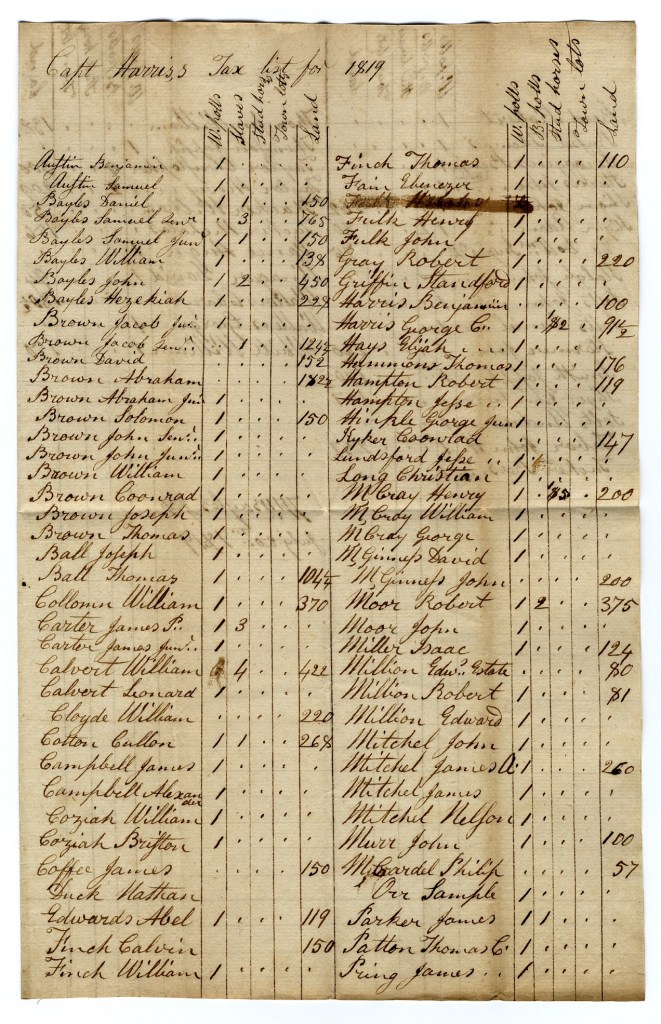 Capt Harris,s Tax list for 1819
W. polls Slaves Stud horses Town lots Land
Austin Benjamin 1 . . . .
Austin Samuel 1 . . . .
Bayles Daniel 1 1 . . 150
Bayles Samuel Senr . 3 . . 765
Bayles Samuel Junr 1 1 . . 150
Bayles William 1 . . . 138
Bayles John 1 2 . . 450
Bayles Hezekiah 1 . . . 228
Brown Jacob Jur. 1 . . . .
Brown Jacob Senr. . 1 . . 124½
Brown David . . . . 152
Brown Abraham . . . . 182½
Brown Abraham Jur 1 . . . .
Brown Solomon 1 . . . 150
Brown John Senr. 1 . . . .
Brown John Junr. 1 . . . .
Brown William 1 . . . .
Brown Coonrad 1 . . . .
Brown Joseph 1 . . . .
Brown Thomas 1 . . . .
Ball Joseph 1 . . . .
Ball Thomas . . . . 104½
Collomn William 1 . . . 370
Carter James P. 1 3 . . .
Carter James Junr. 1 . . . .
Calvert William 4 . . 422
Calvert Leonard 1 . . . .
Cloyde William . . . . 220
Cotton Cullon 1 1 . . 268
Campbell James 1 . . . .
Campbell Alexander 1 . . . .
Coziah William 1 . . . .
Coziah Brifton 1 . . . .
Coffee James . . . . 150
Duck Nathan
Edwards Abel 1 . . . 119
Finch Calvin . . . . 150
Finch William 1 . . . .
W. polls B. polls Stud horses Town lots Land
Finch Thomas 1 . . . 110
Fain Ebenezer 1 . . . .
Fulk Henry 1 . . . .
Fulk John 1 . . . .
Gray Robert 1 . . . 220
Griffin Standford 1 . . . .
Harris Benjamin . . . . 100
Harris George C. 1 . $2 . 91½
Hays Elijah 1 . . . .
Hammons Thomas 1 . . . 176
Hampton Robert 1 . . . 119
Hampton Jesse 1 . . . .
Hinkle George Jun 1 . . . .
Kyker Coonrad . . . . 147
Lundsford Jesse 1 . . .
Long Christian 1 . . . .
McCray Henry 1 . $5 . 200
McCray William 1 . . . .
McCray George 1 . . . .
McGinness David 1 . . . .
McGinness John . . . . 200
Moor Robert 1 2 . . 375
Moor John 1 . . . .
Miller Isaac 1 . . . 124
Million Edwd. Estate . . . . 80
Million Robert 1 . . . 81
Million Edward 1 . . . .
Mitchel John 1 . . . .
Mitchel James A. 1 . . . 260
Mitchel James 1 . . . .
Mitchel Nelson 1 . . . .
Murr John 1 . . . 100
McCardel Philip . . . . 57
Orr Sample 1 . . . .
Parker James 1 1 . . .
Patton Thomas C. 1 . . . .
Pring James 1 . . . .